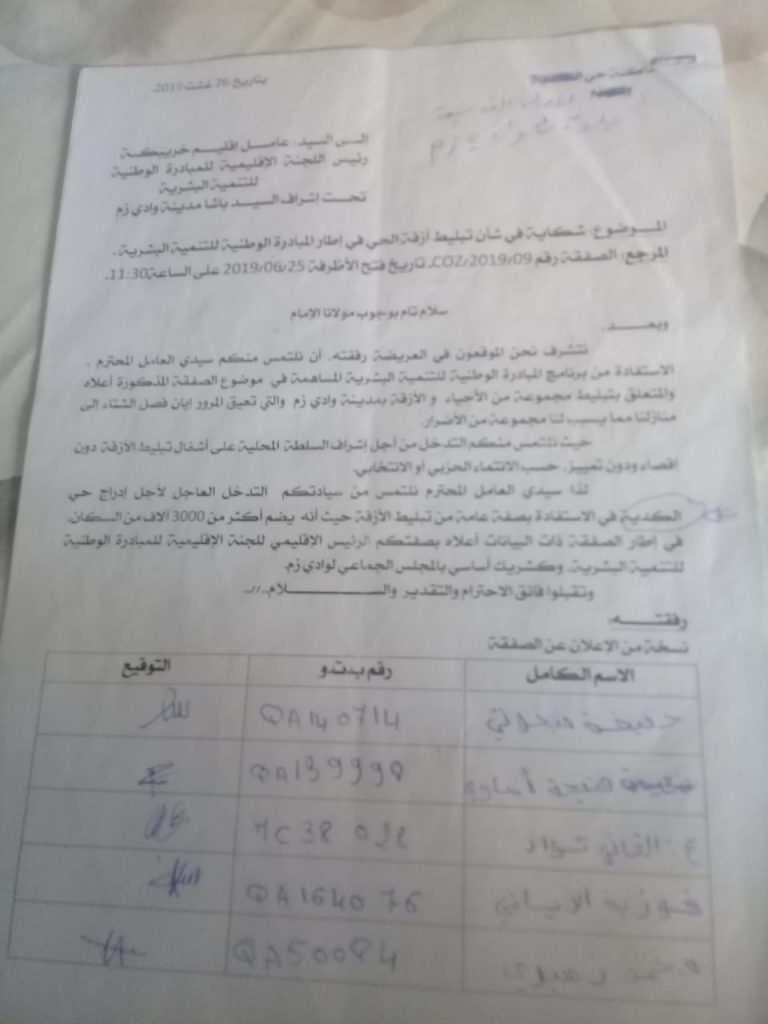 ساكنة حي الكدية
بتاريخ 26 غشت 2019.
إلى السيد: عامل إقليم خريبكة
رئيس اللجنة الإقليمية للمبادرة الوطنية
للتنمية البشرية
تحت إشراف السيد باشا مدينة وادي زم
الموضوع: شكاية في شأن تبليط أزقة الحي في إطار المبادرة الوطنية للتنمية البشرية.
المرجع: الصفقة رقم COZ/2019/09. تاريخ فتح الأظرفة 2019/06/25 على الساعة 11:30.
سلام تام بوجوب مولانا الإمام
وبعد.
نتشرف نحن الموقعون في العريضة رفقته. أن نلتمس منكم سيدي العامل المحترم.
الاستفادة من برنامج المبادرة الوطنية للتنمية البشرية المساهمة في موضوع الصفقة المذكورة أعلاه
والمتعلق بتبليط مجموعة من الأحياء و الأزقة بمدينة وادي زم والتي تعيق المرور إبان فصل الشتاء إلى
منازلنا مما يسبب لنا مجموعة من الأضرار.
حيث نلتمس منكم التدخل من أجل إشراف السلطة المحلية على أشغال تبليط الأزقة دون
إقصاء ودون تمييز. حسب الانتماء الحزبي أو الانتخابي.
لذا سيدي العامل المحترم نلتمس من سيادتكم التدخل العاجل لأجل إدراج حي
الكدية في الاستفادة بصفة عامة من تبليط الأزقة حيث أنه يضم أكثر من 3000 آلاف من السكان.
في إطار الصفقة ذات البيانات أعلاه بصفتكم الرئيس الإقليمي للجنة الإقليمية للمبادرة الوطنية
للتنمية البشرية. وكشريك أساسي بالمجلس الجماعي لوادي زم.
وتقبلوا فائق الاحترام والتقدير والسلام.//..
رفقته:
نسخة من الإعلان عن الصفقة
الاسم الكامل رقم ب.ت.و التوقيع
QA140714
QA139998
MC38028
QA164076
QA50084